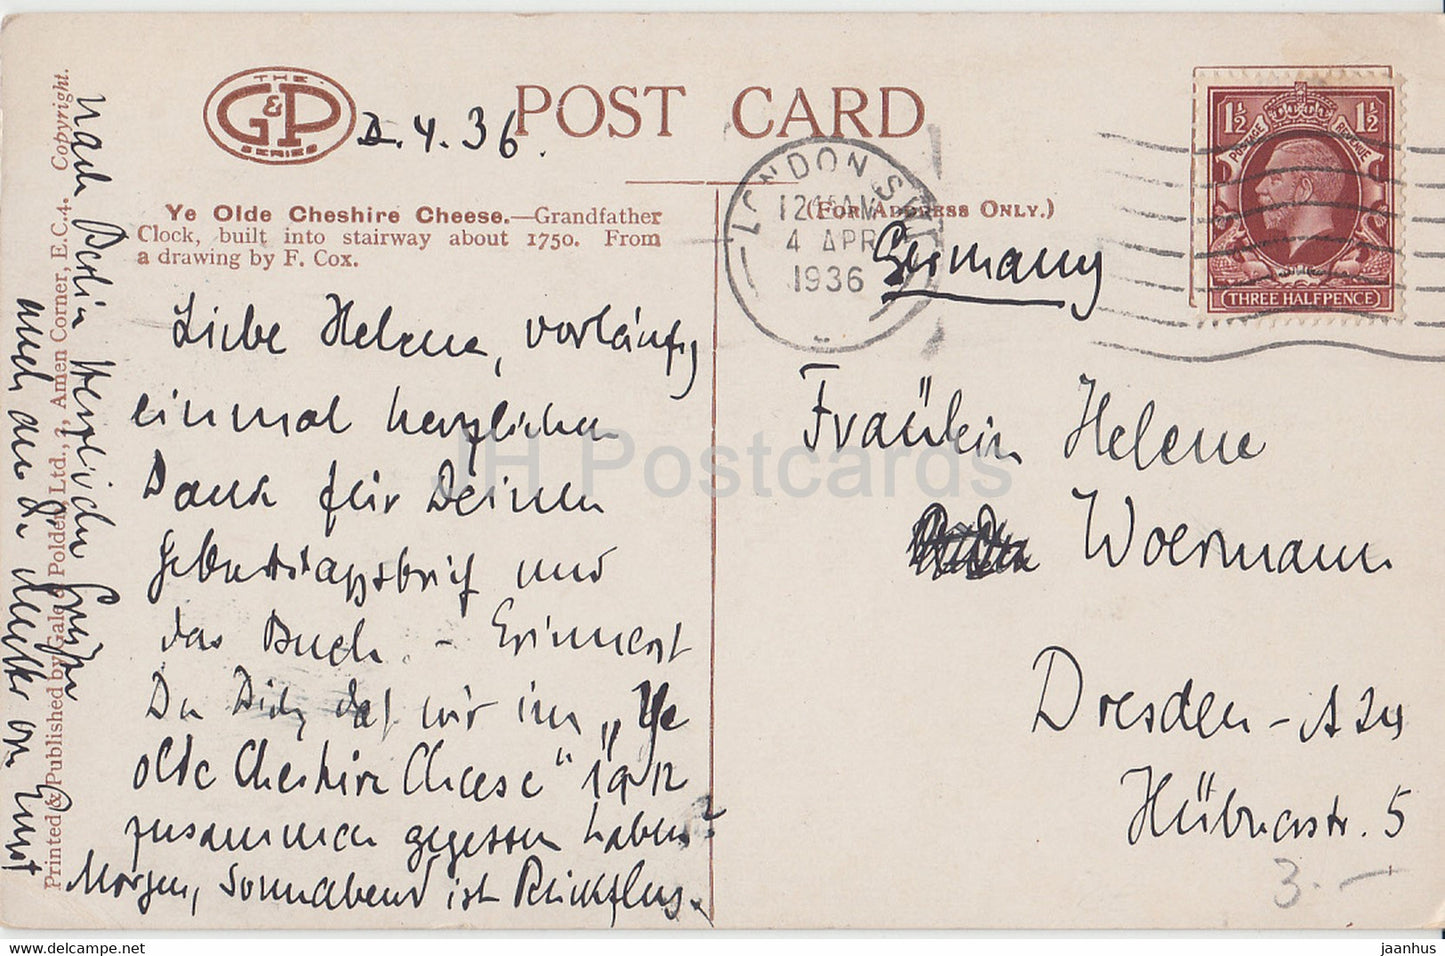 THE
G&P
SERIES
POST CARD
3.4.36.
Ye Olde Cheshire Cheese.—Grandfather
Clock, built into stairway about 1750. From
a drawing by F. Cox.
(FOR ADDRESS ONLY.)
LONDON S.W.1
12 15 AM
4 APR
1936
1½ 1½
POSTAGE REVENUE
THREE HALFPENCE
Germany
Liebe Helene, vorläufig
einmal herzlichen
Dank für Deinen
Geburtstagsbrief und
das Buch – Erinnerst
Du Dich, daß wir im „Ye
olde Cheshire Cheese" 1912
zusammen gegessen haben?
Morgen, Sonnabend ist Rückflug
nach Berlin Herzliche Grüße
auch an die Mutter von Ernst
Fräulein Helene
Woermann
Dresden-A 24
Hübnerstr. 5
3.-
Printed & Published by Gale & Polden Ltd., 2, Amen Corner, E.C.4. Copyright.
JH Postcards
jaanhus